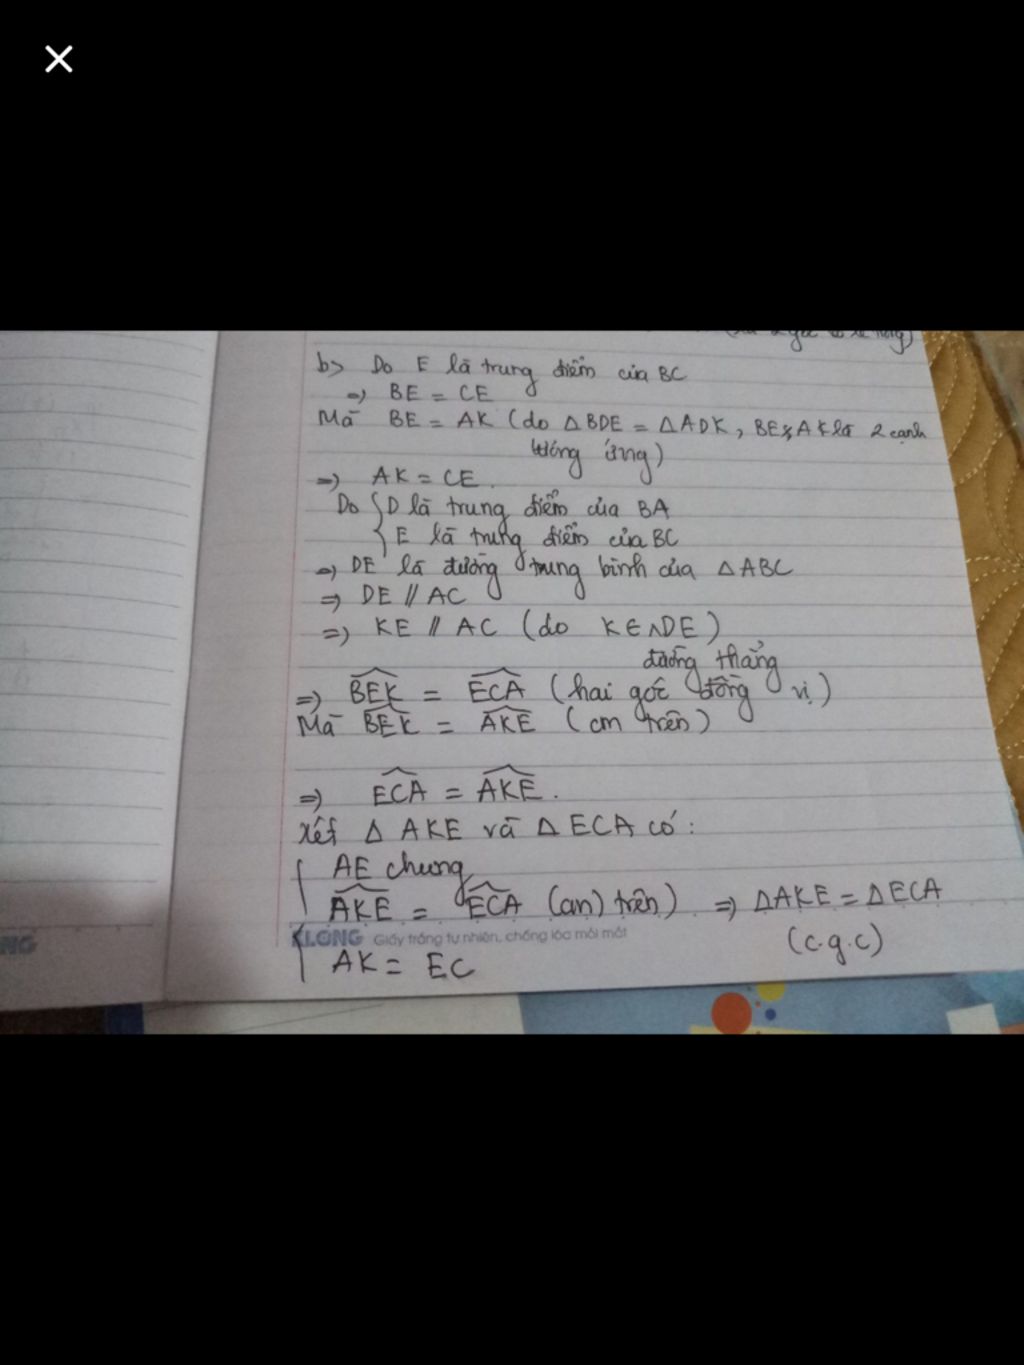 b> Do E là trung điểm của BC
=> BE = CE
Mà BE = AK (do △BDE = △ADK, BE & AK là 2 cạnh
tương ứng)
=> AK = CE.
Do { D là trung điểm của BA
E là trung điểm của BC
=> DE là đường trung bình của △ABC
=> DE // AC
=> KE // AC (do K ∈ DE)
đường thẳng
=> BEK = ECA (hai góc đồng vị)
Mà BEK = AKE (cm trên)
=> ECA = AKE.
Xét △ AKE và △ ECA có:
AE chung
AKE = ECA (cm) trên) => △AKE = △ECA
KLONG Giấy trắng tự nhiên, chống lóa mỏi mắt
(c.g.c)
AK = EC